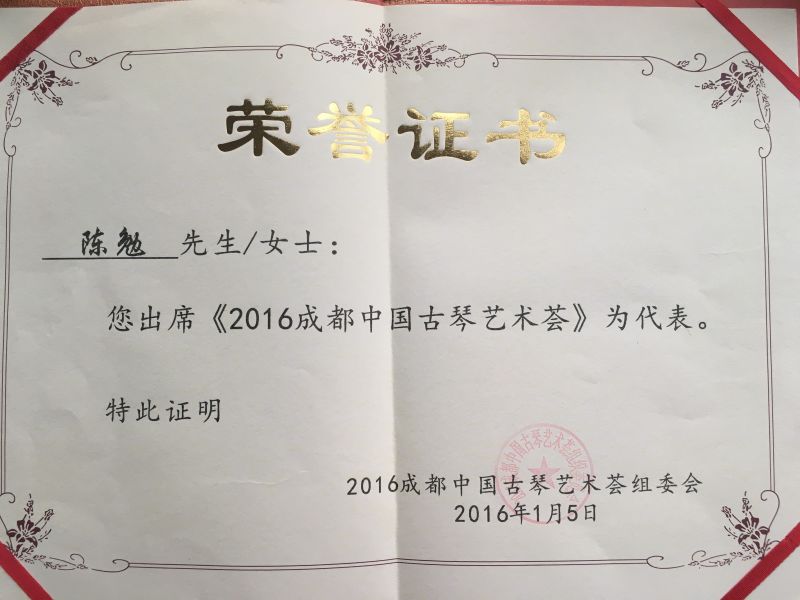 荣誉证书
陈勉 先生/女士：
您出席《2016成都中国古琴艺术荟》为代表。
特此证明
2016成都中国古琴艺术荟组委会
2016年1月5日